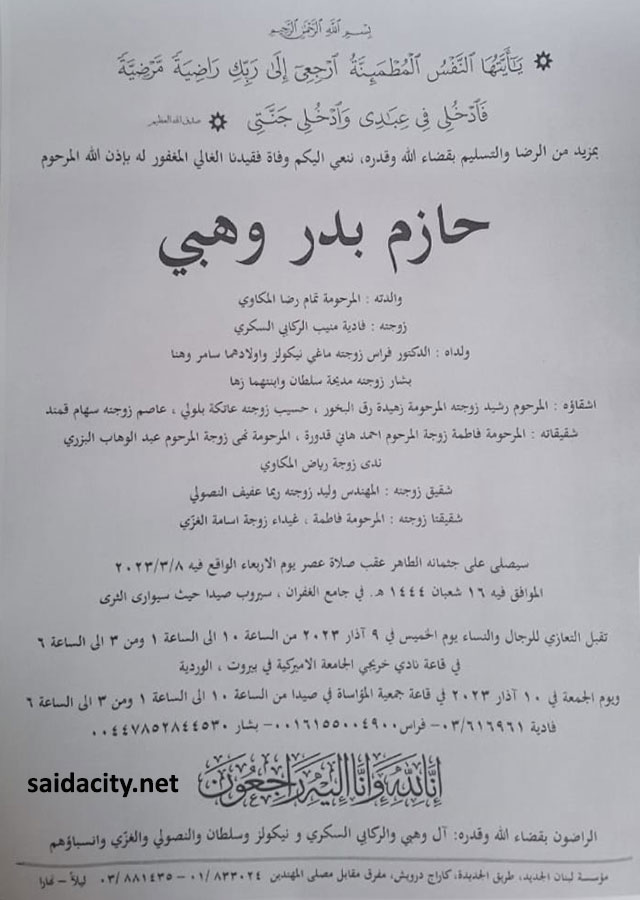 بسم الله الرحمن الرحيم
يَا أَيَّتُهَا النَّفْسُ الْمُطْمَئِنَّةُ ارْجِعِي إِلَىٰ رَبِّكِ رَاضِيَةً مَّرْضِيَّةً
فَادْخُلِي فِي عِبَادِي وَادْخُلِي جَنَّتِي صدق الله العظيم
بمزيد من الرضا والتسليم بقضاء الله وقدره، ننعي اليكم وفاة فقيدنا الغالي المغفور له بإذن الله المرحوم
حازم بدر وهبي
والدته : المرحومة تمام رضا المكاوي
زوجته : فادية منيب الركابي السكري
ولداه : الدكتور فراس زوجته ماغي نيكولز واولادهما سامر وهنا
بشار زوجته مديحة سلطان وابنتهما زها
اشقاؤه : المرحوم رشيد زوجته المرحومة زهيدة رق البخور ، حسيب زوجته عاتكة بلولي ، عاصم زوجته سهام قمند
شقيقاته : المرحومة فاطمة زوجة المرحوم احمد هاني قدورة ، المرحومة نهى زوجة المرحوم عبد الوهاب البزري
ندى زوجة رياض المكاوي
شقيق زوجته : المهندس وليد زوجته ريما عفيف النصولي
شقيقتا زوجته : المرحومة فاطمة ، غيداء زوجة اسامة الغزّي
سيصلى على جثمانه الطاهر عقب صلاة عصر يوم الاربعاء الواقع فيه ٢٠٢٣/٣/٨
الموافق فيه ١٦ شعبان ١٤٤٤ هـ. في جامع الغفران ، سيروب صيدا حيث سيوارى الثرى
تقبل التعازي للرجال والنساء يوم الخميس في ٩ آذار ٢٠٢٣ من الساعة ١٠ الى الساعة ١ ومن ٣ الى الساعة ٦
في قاعة نادي خريجي الجامعة الاميركية في بيروت ، الوردية
ويوم الجمعة في ١٠ آذار ٢٠٢٣ في قاعة جمعية المؤاساة في صيدا من الساعة ١٠ الى الساعة ١ ومن ٣ الى الساعة ٦
فادية ٠٣/٦١٦٩٦١- فراس٠٠١٦١٥٥٠٠٤٩٠٠- بشار ٠٠٤٤٧٨٥٢٨٤٤٥٣٠
إنا لله وإنا إليه راجعون
saidacity.net
الراضون بقضاء الله وقدره: آل وهبي والركابي السكري و نيكولز وسلطان والنصولي والغزّي وانسباؤهم
مؤسسة لبنان الجديد، طريق الجديدة، كاراج درويش، مفرق مقابل مصلى المهندين ٠١/٨٣٣٠٢٤ - ٠٣/٨٨١٤٣٥ ليلاً - نهارا